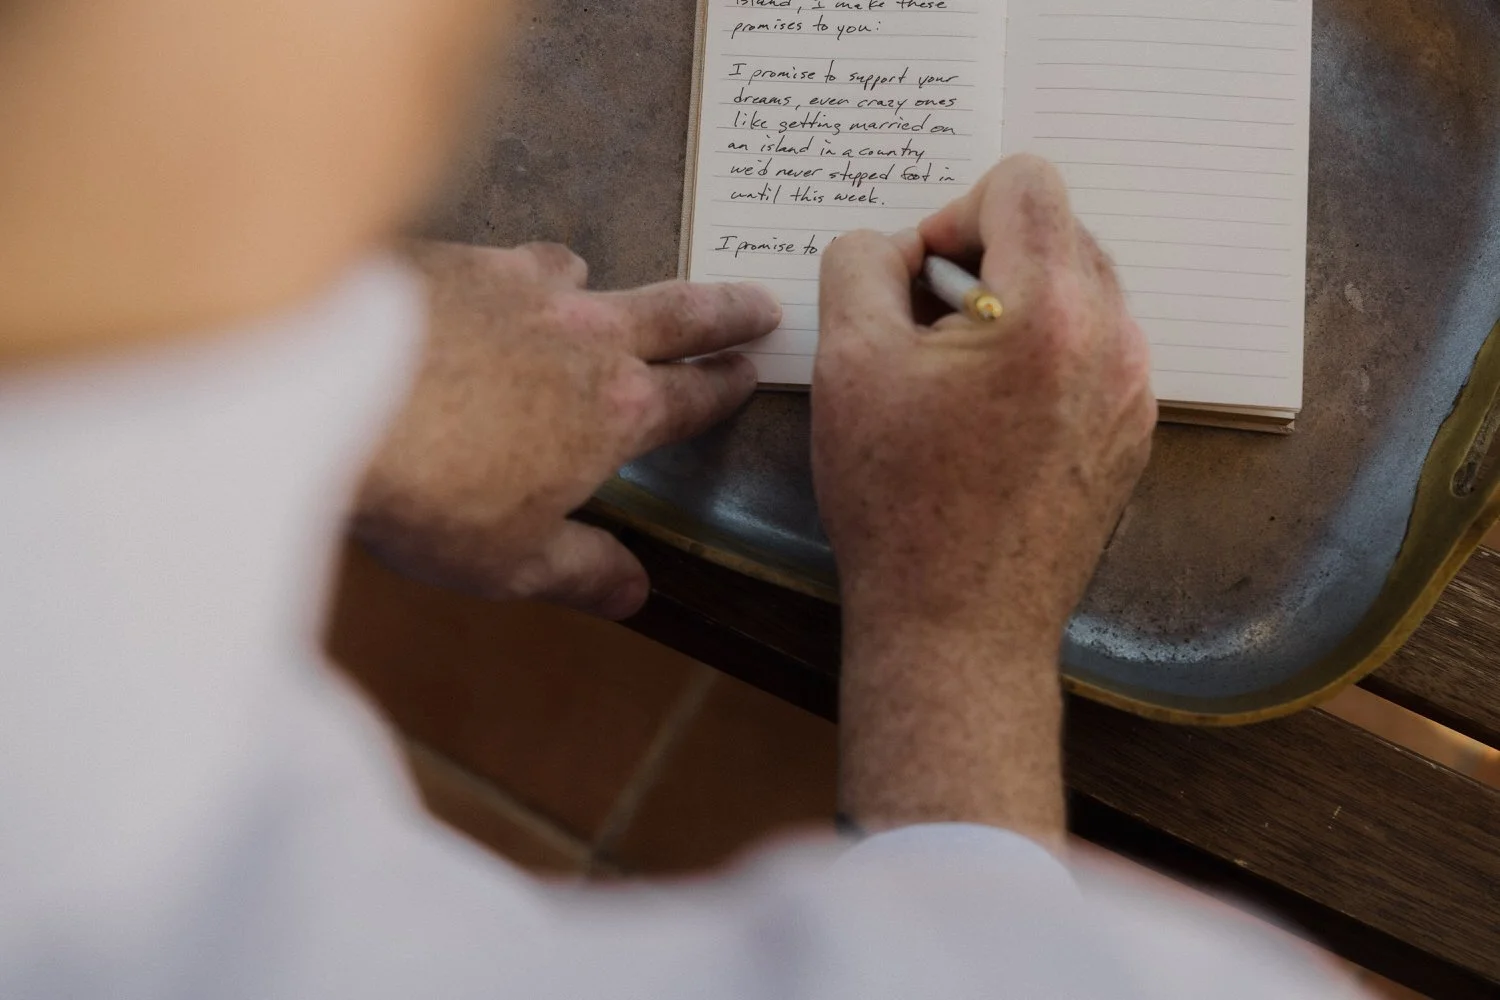 island, I make these
promises to you:
I promise to support your
dreams, even crazy ones
like getting married on
an island in a country
we'd never stepped foot in
until this week.
I promise to